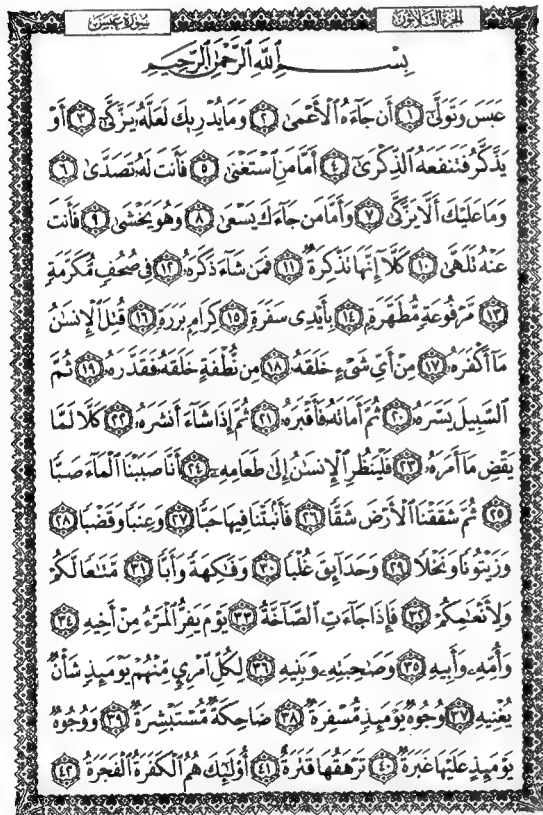 الجزء الثلاثون
سورة عبس
بِسْمِ ٱللَّهِ ٱلرَّحْمَٰنِ ٱلرَّحِيمِ
عَبَسَ وَتَوَلَّىٰٓ ١ أَن جَآءَهُ ٱلْأَعْمَىٰ ٢ وَمَا يُدْرِيكَ لَعَلَّهُۥ يَزَّكَّىٰٓ ٣ أَوْ
يَذَّكَّرُ فَتَنفَعَهُ ٱلذِّكْرَىٰٓ ٤ أَمَّا مَنِ ٱسْتَغْنَىٰ ٥ فَأَنتَ لَهُۥ تَصَدَّىٰ ٦
وَمَا عَلَيْكَ أَلَّا يَزَّكَّىٰ ٧ وَأَمَّا مَن جَآءَكَ يَسْعَىٰ ٨ وَهُوَ يَخْشَىٰ ٩ فَأَنتَ
عَنْهُ تَلَهَّىٰ ١٠ كَلَّآ إِنَّهَا تَذْكِرَةٌ ١١ فَمَن شَآءَ ذَكَرَهُۥ ١٢ فِى صُحُفٍ مُّكَرَّمَةٍ
١٣ مَّرْفُوعَةٍ مُّطَهَّرَةٍۭ ١٤ بِأَيْدِى سَفَرَةٍ ١٥ كِرَامٍۭ بَرَرَةٍ ١٦ قُتِلَ ٱلْإِنسَٰنُ
مَآ أَكْفَرَهُۥ ١٧ مِنْ أَىِّ شَىْءٍ خَلَقَهُۥ ١٨ مِن نُّطْفَةٍ خَلَقَهُۥ فَقَدَّرَهُۥ ١٩ ثُمَّ
ٱلسَّبِيلَ يَسَّرَهُۥ ٢٠ ثُمَّ أَمَاتَهُۥ فَأَقْبَرَهُۥ ٢١ ثُمَّ إِذَا شَآءَ أَنشَرَهُۥ ٢٢ كَلَّا لَمَّا
يَقْضِ مَآ أَمَرَهُۥ ٢٣ فَلْيَنظُرِ ٱلْإِنسَٰنُ إِلَىٰ طَعَامِهِۦٓ ٢٤ أَنَّا صَبَبْنَا ٱلْمَآءَ صَبًّا
٢٥ ثُمَّ شَقَقْنَا ٱلْأَرْضَ شَقًّا ٢٦ فَأَنۢبَتْنَا فِيهَا حَبًّا ٢٧ وَعِنَبًا وَقَضْبًا ٢٨
وَزَيْتُونًا وَنَخْلًا ٢٩ وَحَدَآئِقَ غُلْبًا ٣٠ وَفَٰكِهَةً وَأَبًّا ٣١ مَّتَٰعًا لَّكُمْ
وَلِأَنْعَٰمِكُمْ ٣٢ فَإِذَا جَآءَتِ ٱلصَّآخَّةُ ٣٣ يَوْمَ يَفِرُّ ٱلْمَرْءُ مِنْ أَخِيهِ ٣٤
وَأُمِّهِۦ وَأَبِيهِ ٣٥ وَصَٰحِبَتِهِۦ وَبَنِيهِ ٣٦ لِكُلِّ ٱمْرِئٍ مِّنْهُمْ يَوْمَئِذٍ شَأْنٌ
يُغْنِيهِ ٣٧ وُجُوهٌ يَوْمَئِذٍ مُّسْفِرَةٌ ٣٨ ضَاحِكَةٌ مُّسْتَبْشِرَةٌ ٣٩ وَوُجُوهٌ
يَوْمَئِذٍ عَلَيْهَا غَبَرَةٌ ٤٠ تَرْهَقُهَا قَتَرَةٌ ٤١ أُو۟لَٰٓئِكَ هُمُ ٱلْكَفَرَةُ ٱلْفَجَرَةُ ٤٢